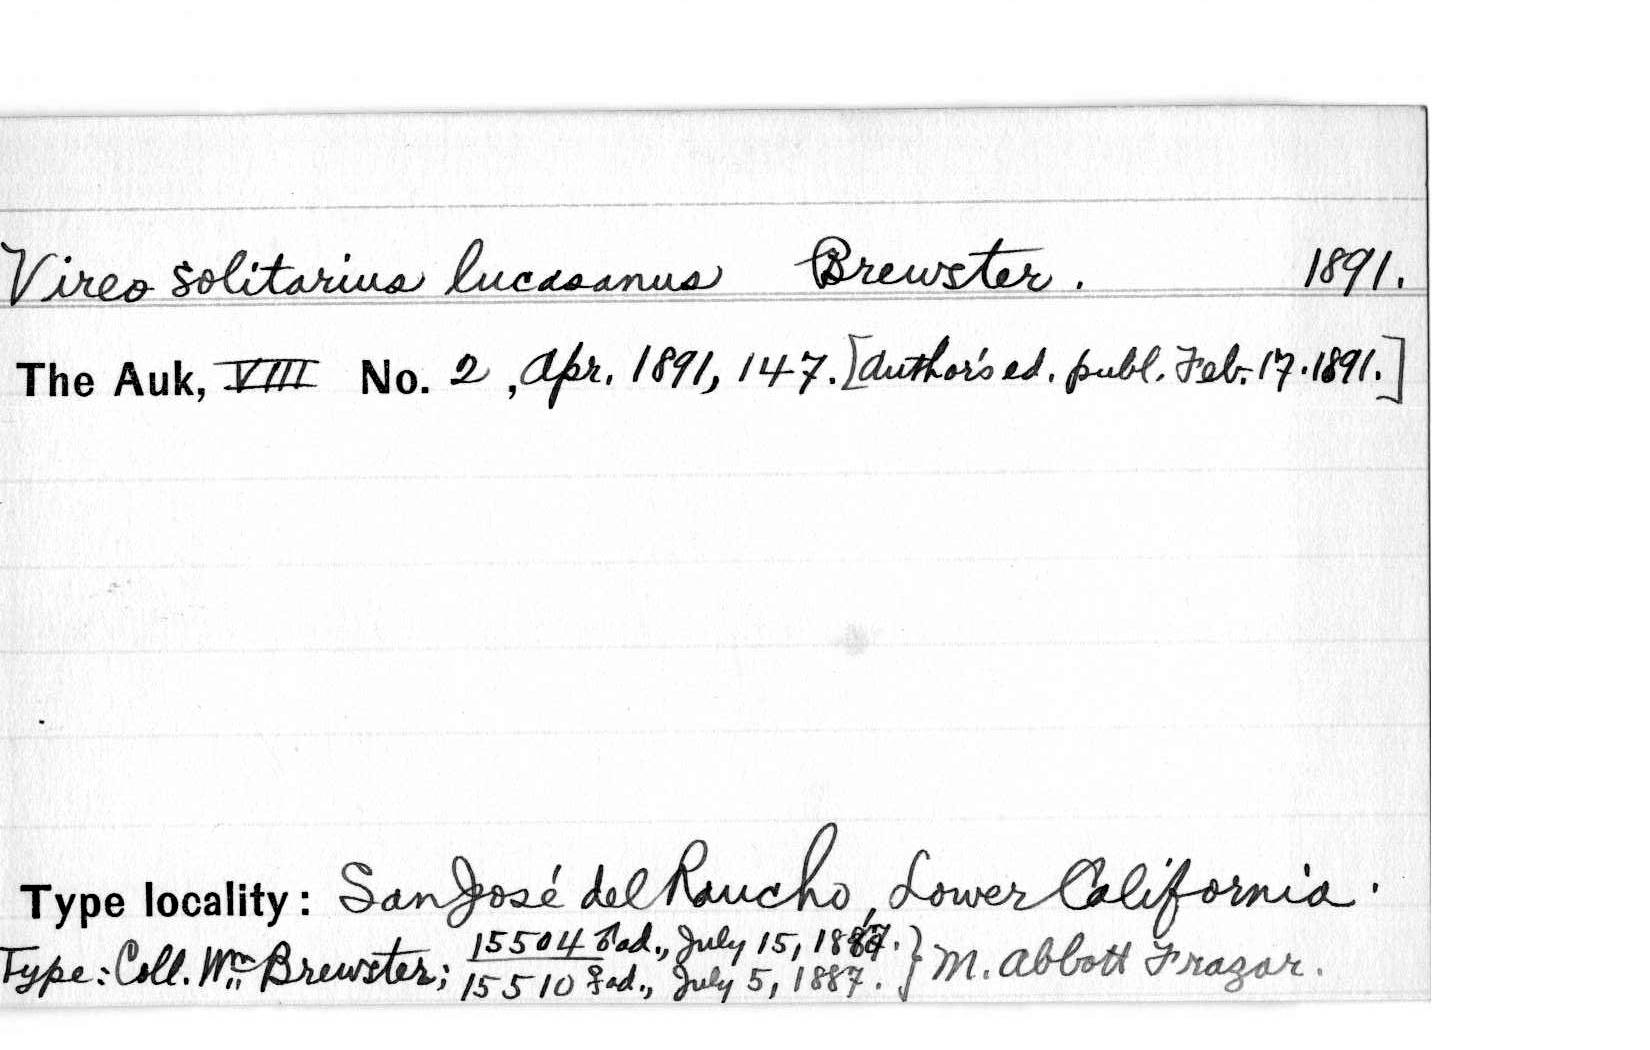 Vireo solitarius lucasanus Brewster. 1891.
The Auk, VIII No. 2, Apr. 1891, 147. [Author's ed. publ. Feb. 17. 1891.]
Type locality: San José del Rancho, Lower California.
Type: Coll. Wm. Brewster; 15504 ♂ ad., July 15, 1887. } M. Abbott Frazar.
15510 ♀ ad., July 5, 1887.